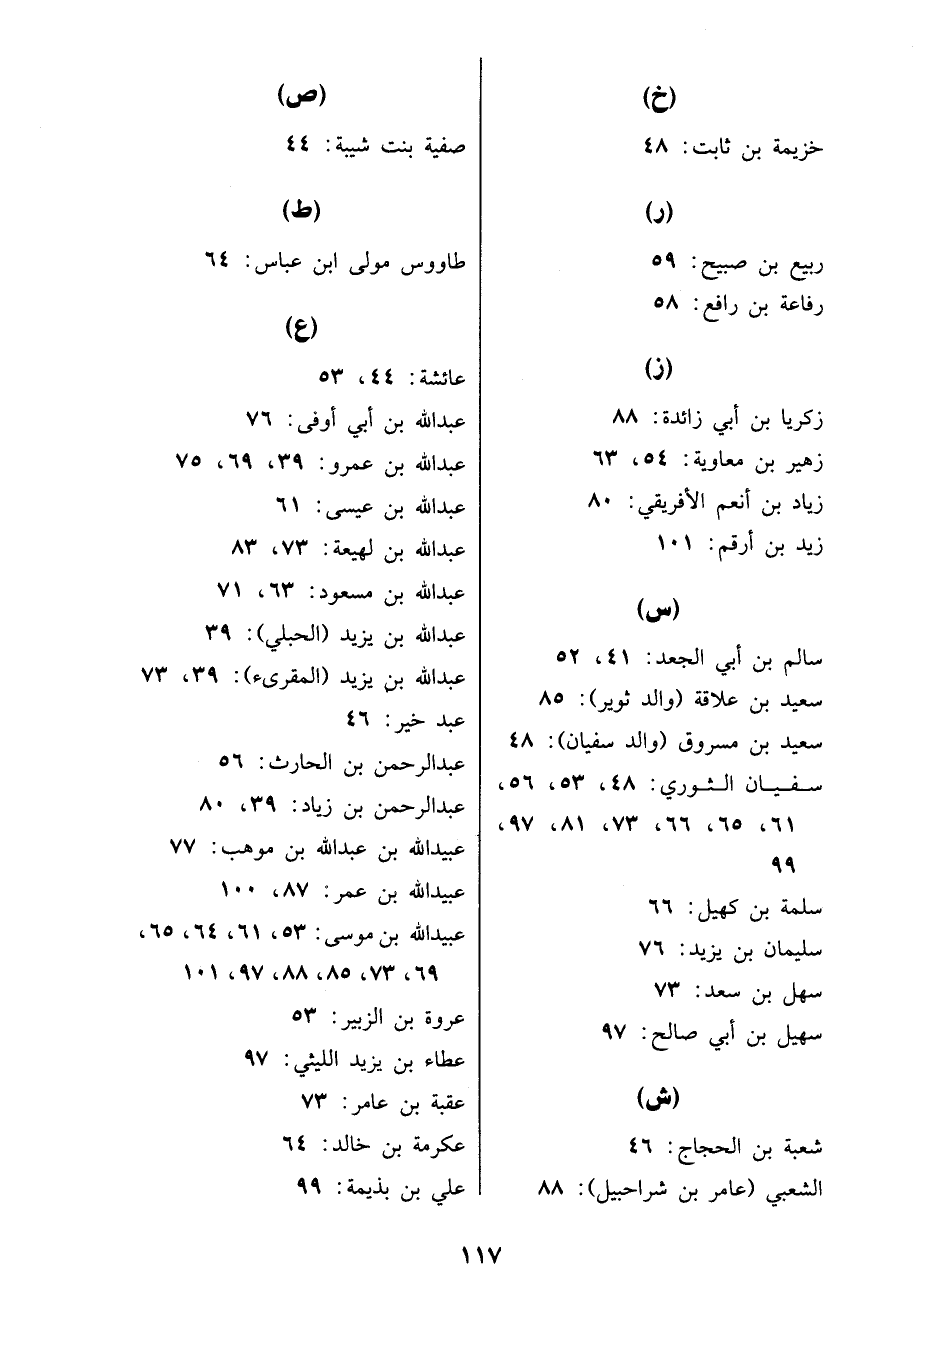 (خ)
خزيمة بن ثابت: ٤٨
(ر)
ربيع بن صبيح: ٥٩
رفاعة بن رافع: ٥٨
(ز)
زكريا بن أبي زائدة: ٨٨
زهير بن معاوية: ٥٤، ٦٣
زياد بن أنعم الأفريقي: ٨٠
زيد بن أرقم: ١٠١
(س)
سالم بن أبي الجعد: ٤١، ٥٢
سعيد بن علاقة (والد ثوير): ٨٥
سعيد بن مسروق (والد سفيان): ٤٨
سفيان الثوري: ٤٨، ٥٣، ٥٦،
٦١، ٦٥، ٦٦، ٧٣، ٨١، ٩٧،
٩٩
سلمة بن كهيل: ٦٦
سليمان بن يزيد: ٧٦
سهل بن سعد: ٧٣
سهيل بن أبي صالح: ٩٧
(ش)
شعبة بن الحجاج: ٤٦
الشعبي (عامر بن شراحبيل): ٨٨
(ص)
صفية بنت شيبة: ٤٤
(ط)
طاووس مولى ابن عباس: ٦٤
(ع)
عائشة: ٤٤، ٥٣
عبدالله بن أبي أوفى: ٧٦
عبدالله بن عمرو: ٣٩، ٦٩، ٧٥
عبدالله بن عيسى: ٦١
عبدالله بن لهيعة: ٧٣، ٨٣
عبدالله بن مسعود: ٦٣، ٧١
عبدالله بن يزيد (الحبلي): ٣٩
عبدالله بن يزيد (المقرىء): ٣٩، ٧٣
عبد خير: ٤٦
عبدالرحمن بن الحارث: ٥٦
عبدالرحمن بن زياد: ٣٩، ٨٠
عبيدالله بن عبدالله بن موهب: ٧٧
عبيدالله بن عمر: ٨٧، ١٠٠
عبيدالله بن موسى: ٥٣، ٦١، ٦٤، ٦٥،
٦٩، ٧٣، ٨٥، ٨٨، ٩٧، ١٠١
عروة بن الزبير: ٥٣
عطاء بن يزيد الليثي: ٩٧
عقبة بن عامر: ٧٣
عكرمة بن خالد: ٦٤
علي بن بذيمة: ٩٩
١١٧